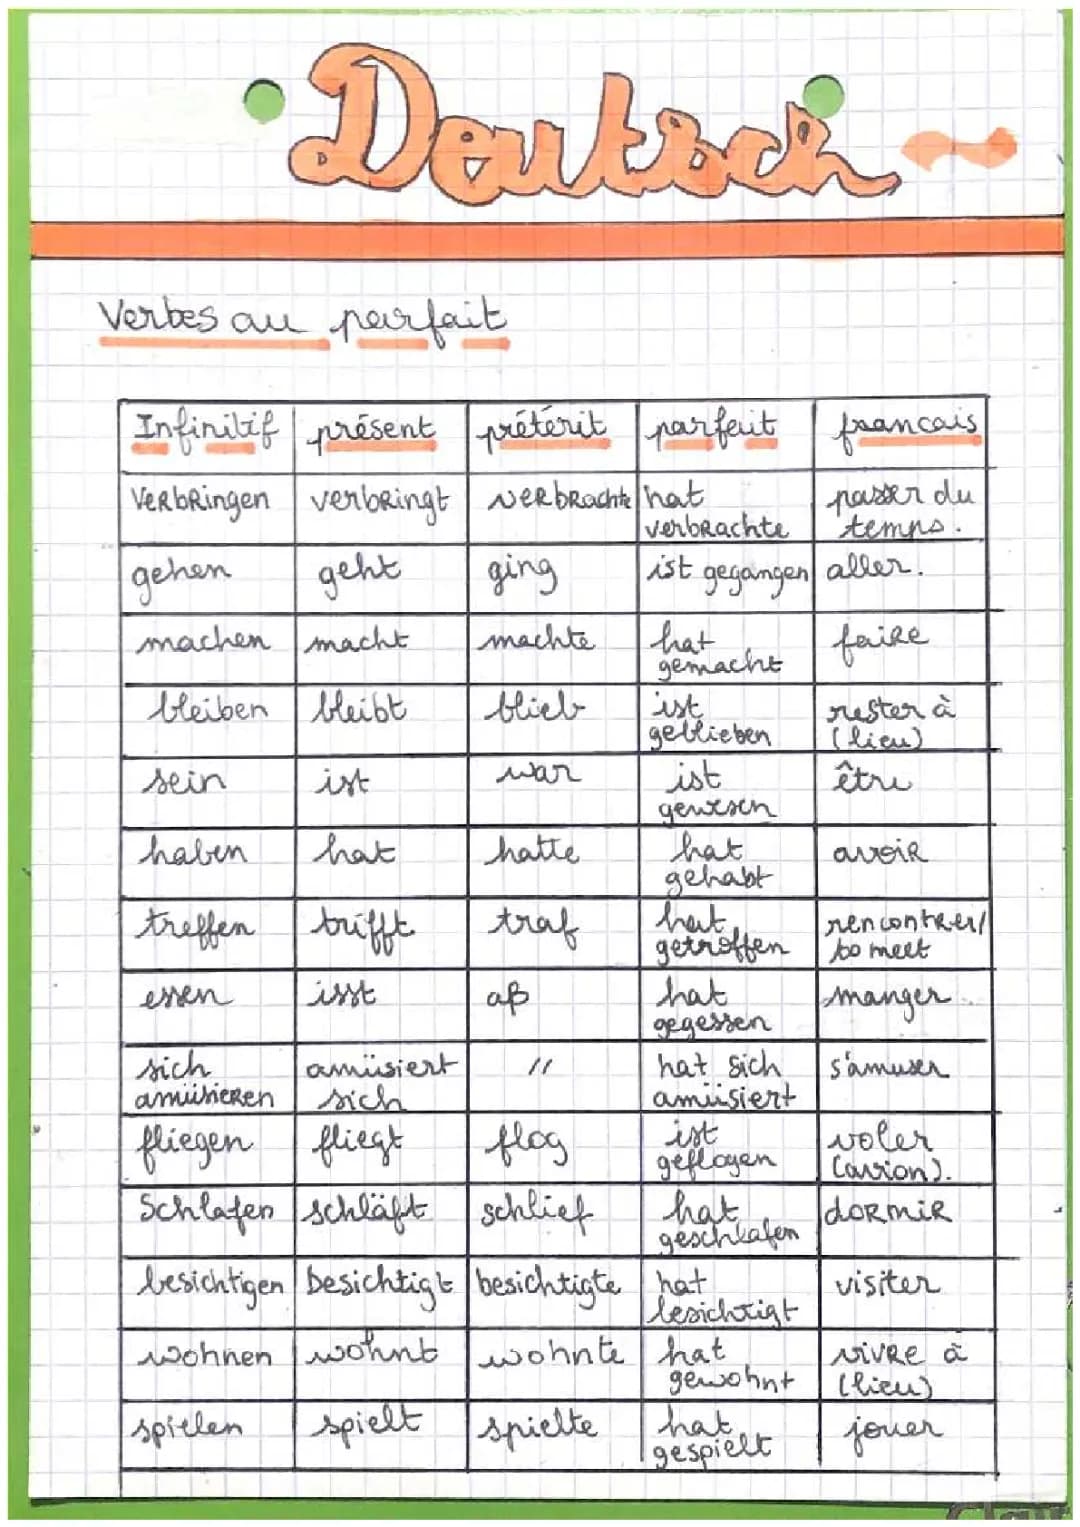 Deutsch
Verbes au parfait
Infinitif présent prétérit parfait francais
verbringen verbringt verbrachte hat verbrachte passer du temps.
gehen geht ging ist gegangen aller.
machen macht machte hat gemacht faire
bleiben bleibt blieb ist geblieben rester à (lieu)
sein ist war ist gewesen être
haben hat hatte hat gehabt avoir
treffen trifft traf hat getroffen rencontrer/ to meet
essen isst aß hat gegessen manger
sich amüsieren amüsiert sich // hat sich amüsiert s'amuser
fliegen fliegt flog ist geflogen voler (avion).
Schlafen schläft schlief hat geschlafen dormir
besichtigen besichtigt besichtigte hat besichtigt visiter
wohnen wohnt wohnte hat gewohnt vivre à (lieu)
spielen spielt spielte hat gespielt jouer